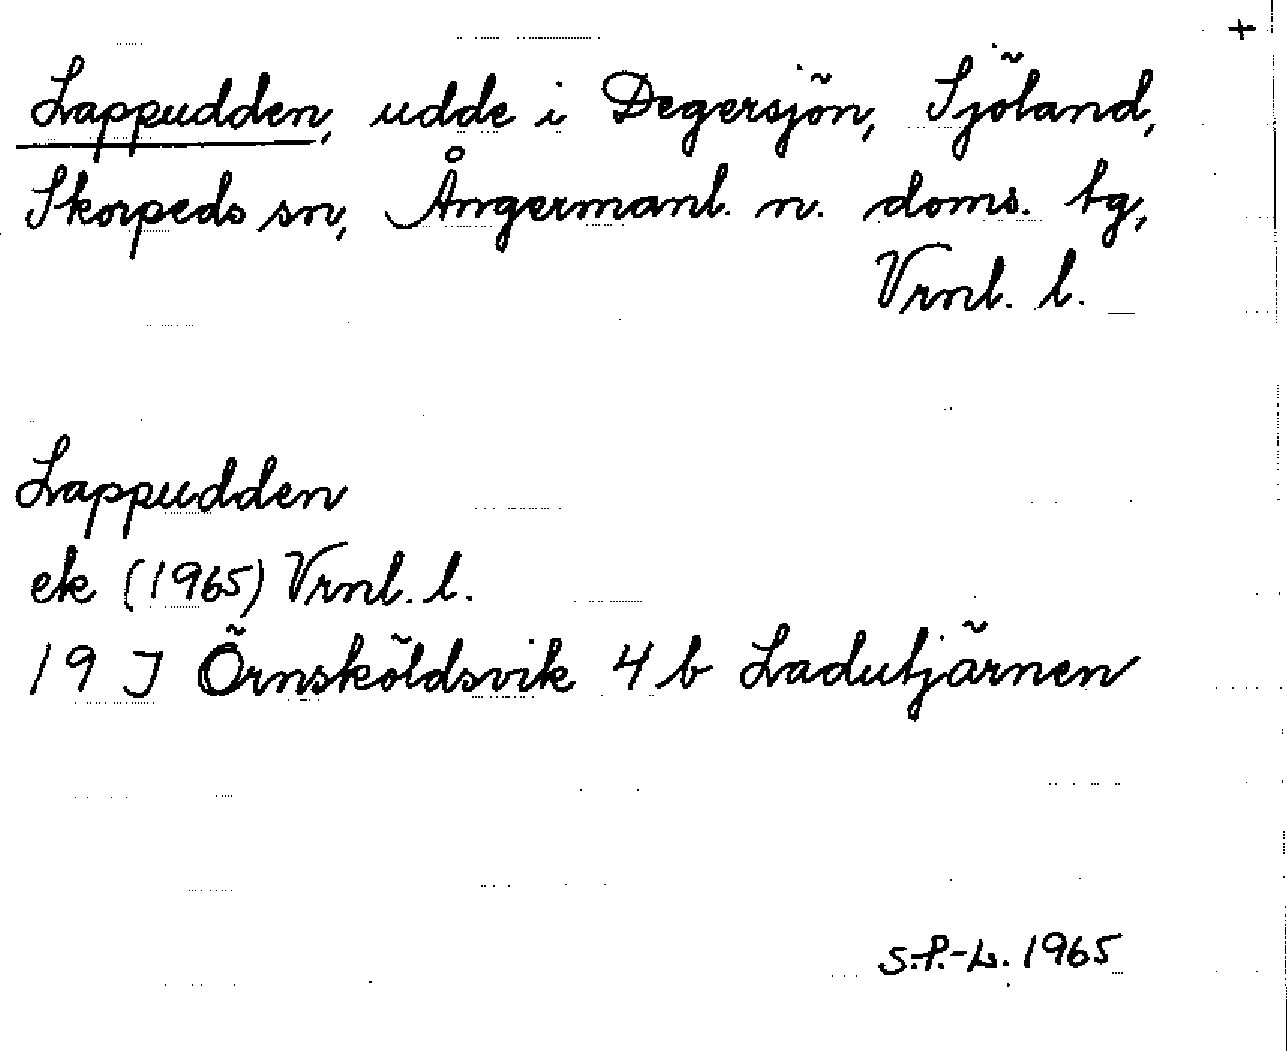 +
Lappudden, udde i Degersjön, Sjöland,
Skorpeds sn, Ångermanl. n. doms. tg,
Vrnl. l.
Lappudden
ek (1965) Vrnl. l.
19 J Örnsköldsvik 4 b Ladutjärnen
S.P.-L. 1965